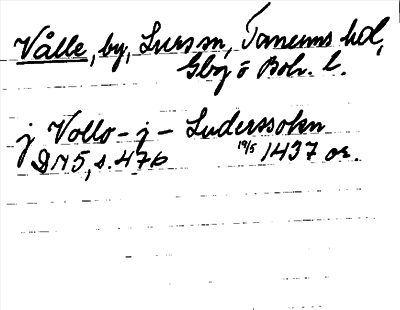 Vålle, by, Lurs sn, Tanums hd,
Gbg o Boh. l.
j Vollo - j - Luderssokn
DN 5, s. 476 19/5 1437 or.